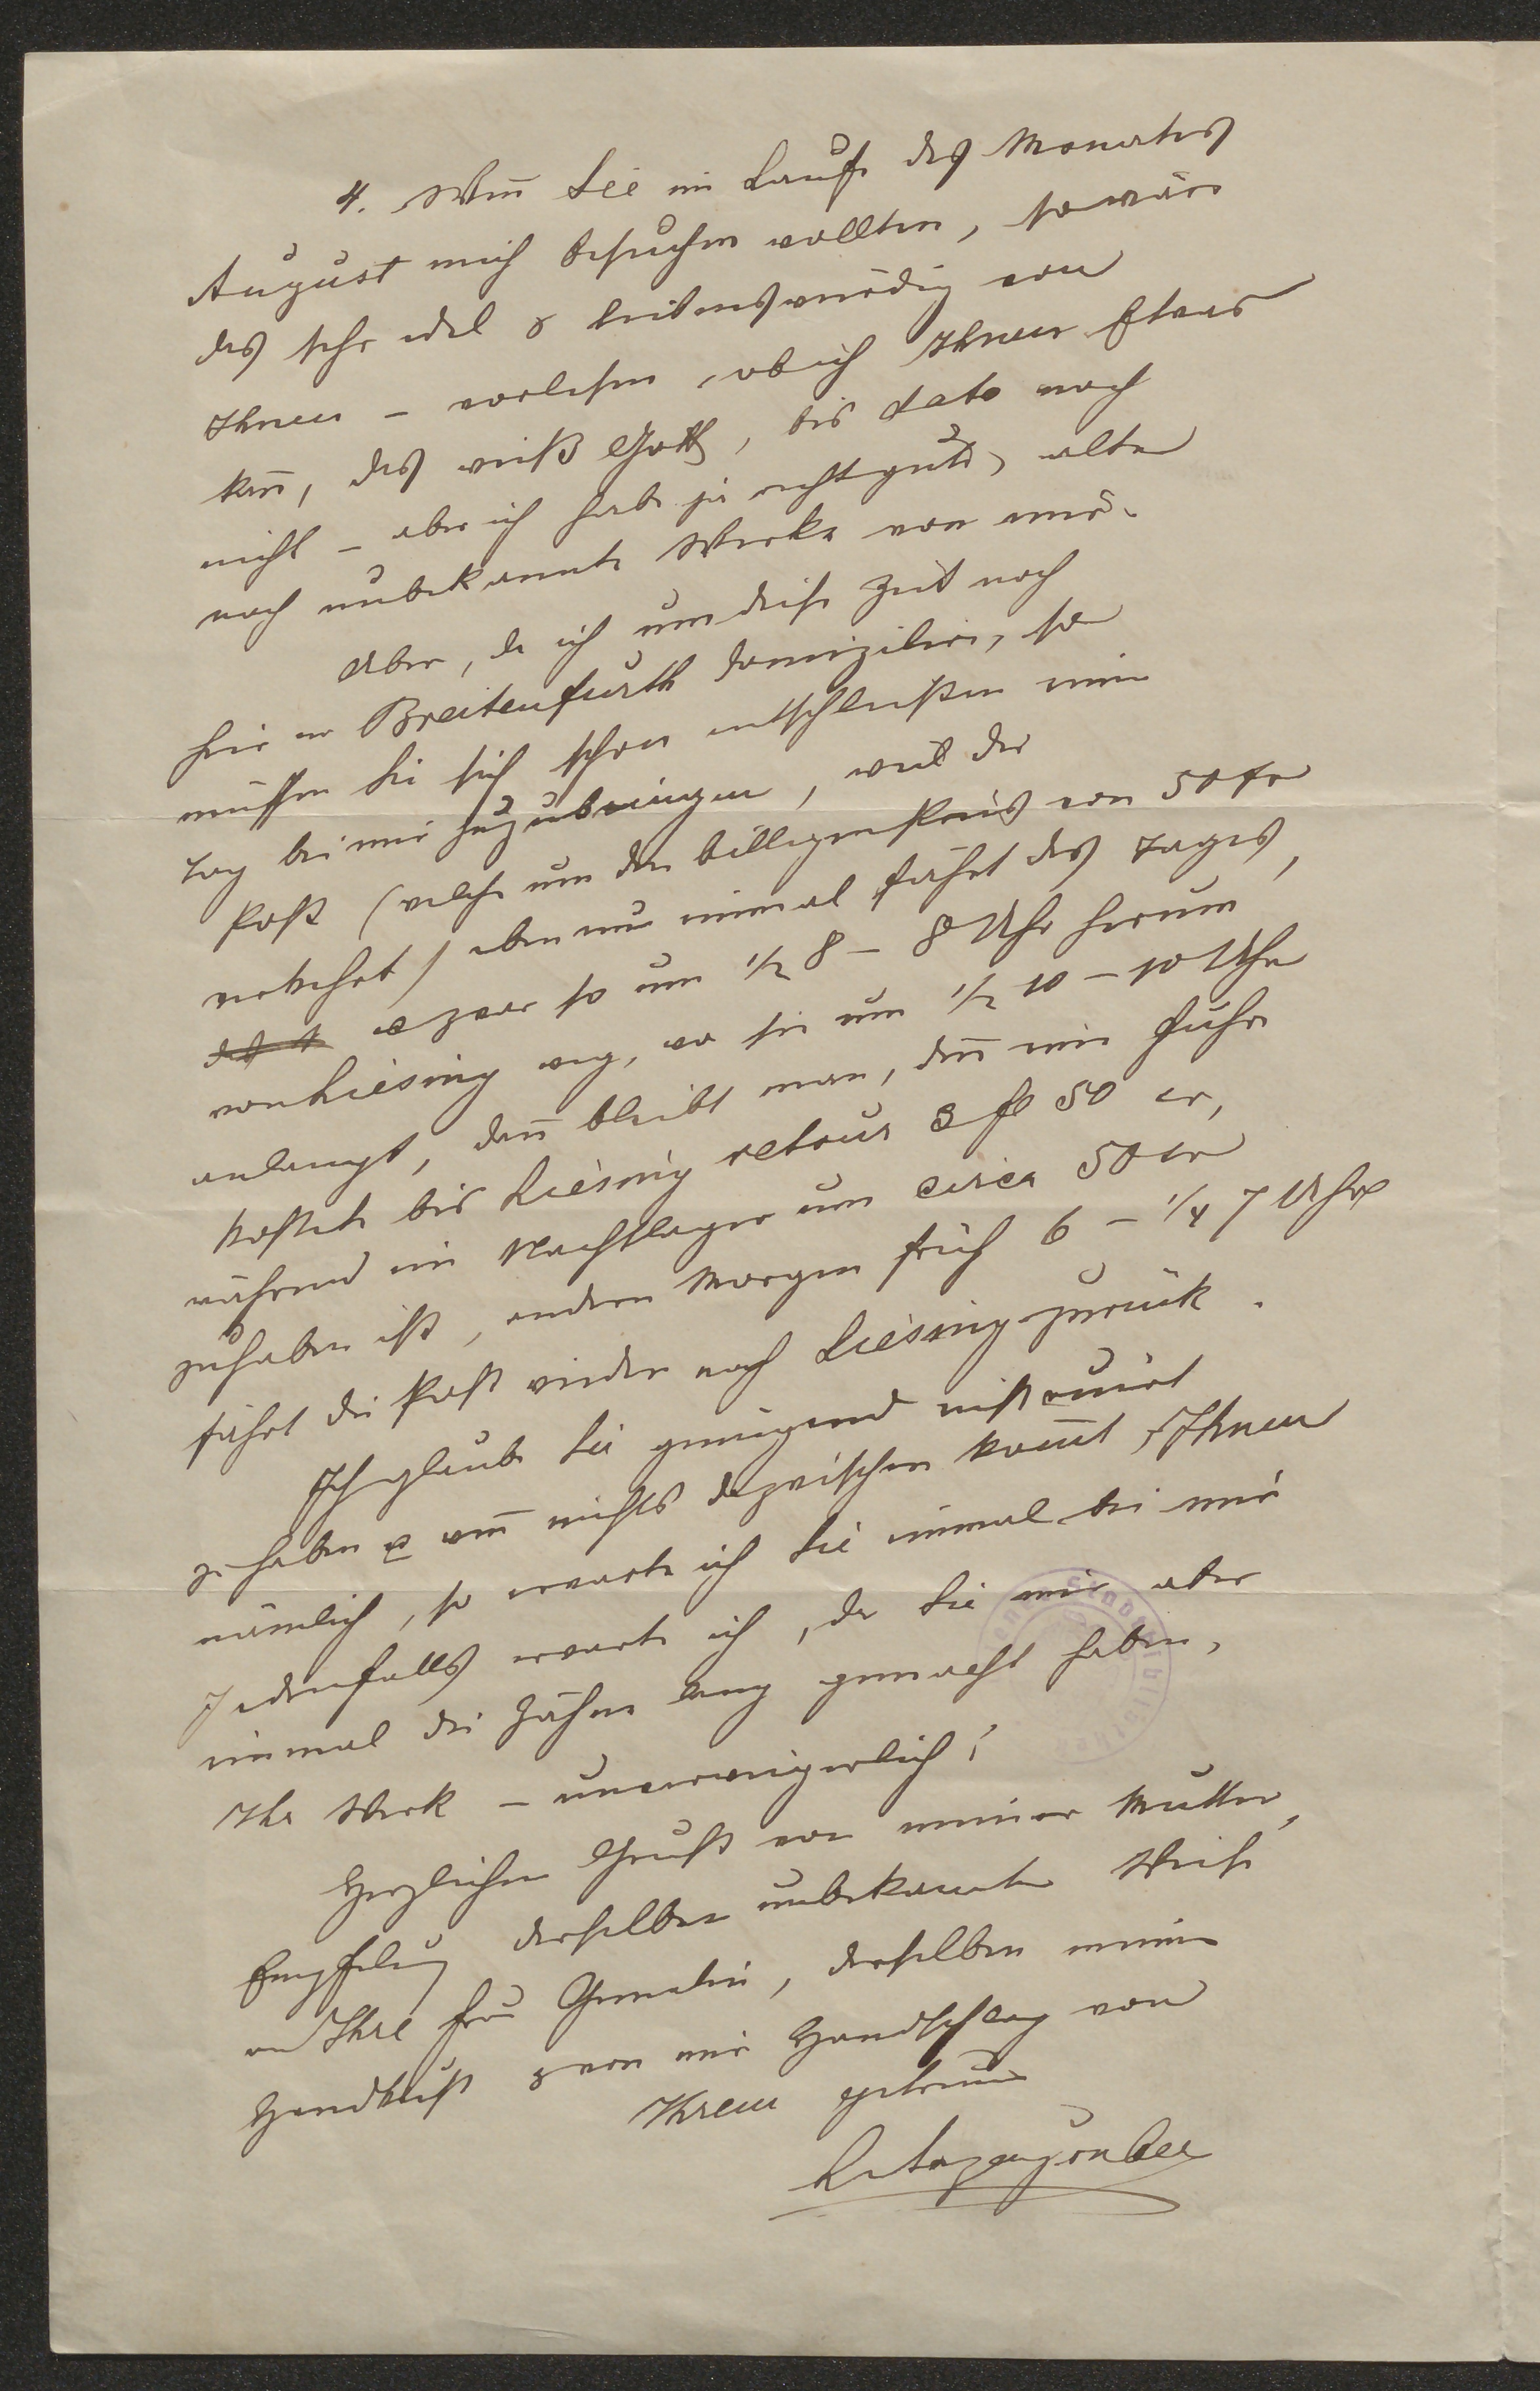 4. Weñ Sie im Laufe des Monates
August mich besuchen wollten, so wäre
das sehr edel & liebenswürdig von
Ihnen – vorlesen, ob ich Ihnen Etwas
kañ, das weiß Gott, bis dato noch
nicht – aber ich habe ja recht gute, alte
noch unbekannte Werke von mir.
Aber, da ich um diese Zeit noch
hier in Breitenfurth domizilire, so
müssen Sie sich schon entschließen einen
Tag bei mir zuzubringen, weil die
Post (welche um den billigen Preis von 50 kr
verkehrt) eben nur einmal fährt des Tages,
& zwar so um ½ 8 – 8 Uhr herum
von Liesing weg, wo sie um ½ 10 – 10 Uhr
anlangt, dañ bleibt man, deñ eine Fuhre
kostete bis Liesing retour 3 fl 50 cr,
während ein Nachtlager um circa 50 cr
zu haben ist, andern Morgen früh 6 – ¼ 7 Uhr
fährt die Post wieder nach Liesing zurück.
Ich glaube Sie genügend instruirt
zu haben & weñ nichts dazwischen kom̃t, Ihnen
nämlich, so erwarte ich Sie einmal bei mir
Jedenfalls erwarte ich, da Sie mir aber
einmal die Zähne lang gemacht haben,
Ihr Werk – unverweigerlich!
Herzlichen Gruß von meiner Mutter,
Empfelung derselben unbekannter Weise
an Ihre Frau Gemalin, derselben meinen
Handkuß & von mir Handschlag von
Ihrem getreuen
LAnzengruber